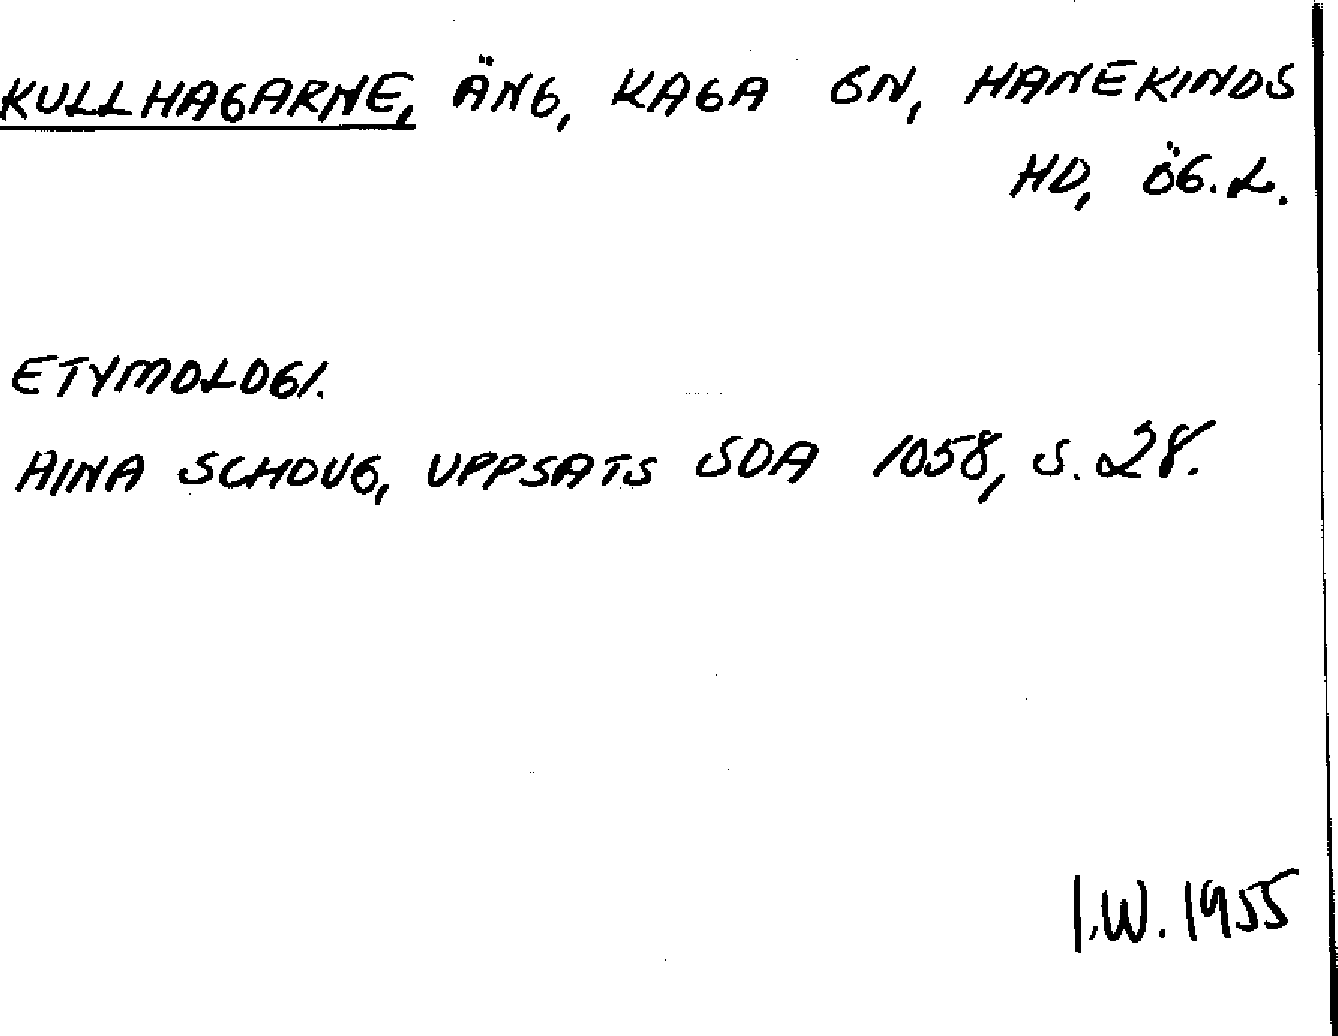 KULLHAGARNE, ÄNG, KAGA SN, HANEKINDS
HD, ÖG.L.
ETYMOLOGI.
AINA SCHOUG, UPPSATS SOA 1058, S. 28.
I.W. 1955